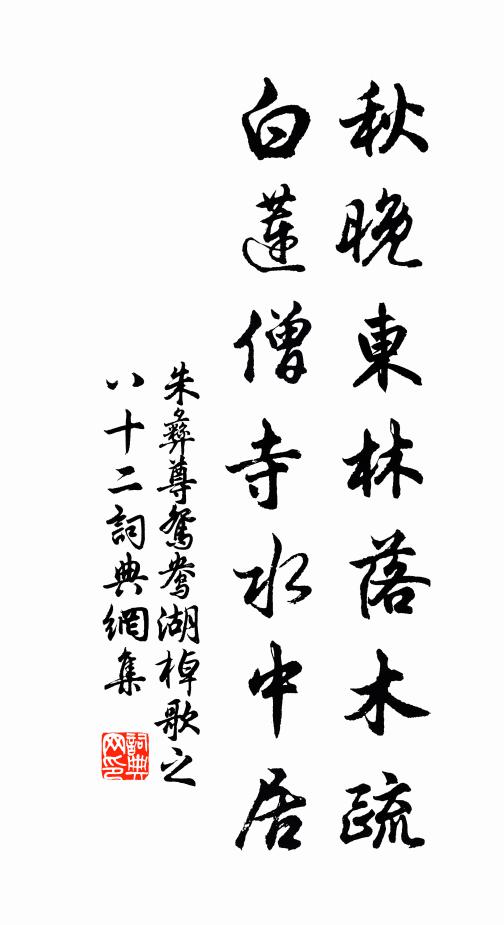 秋晚東林落木疏
白蓮僧寺水中居
朱彝尊鴛鴦湖棹歌之
八十二詞典網集
詞典
网印